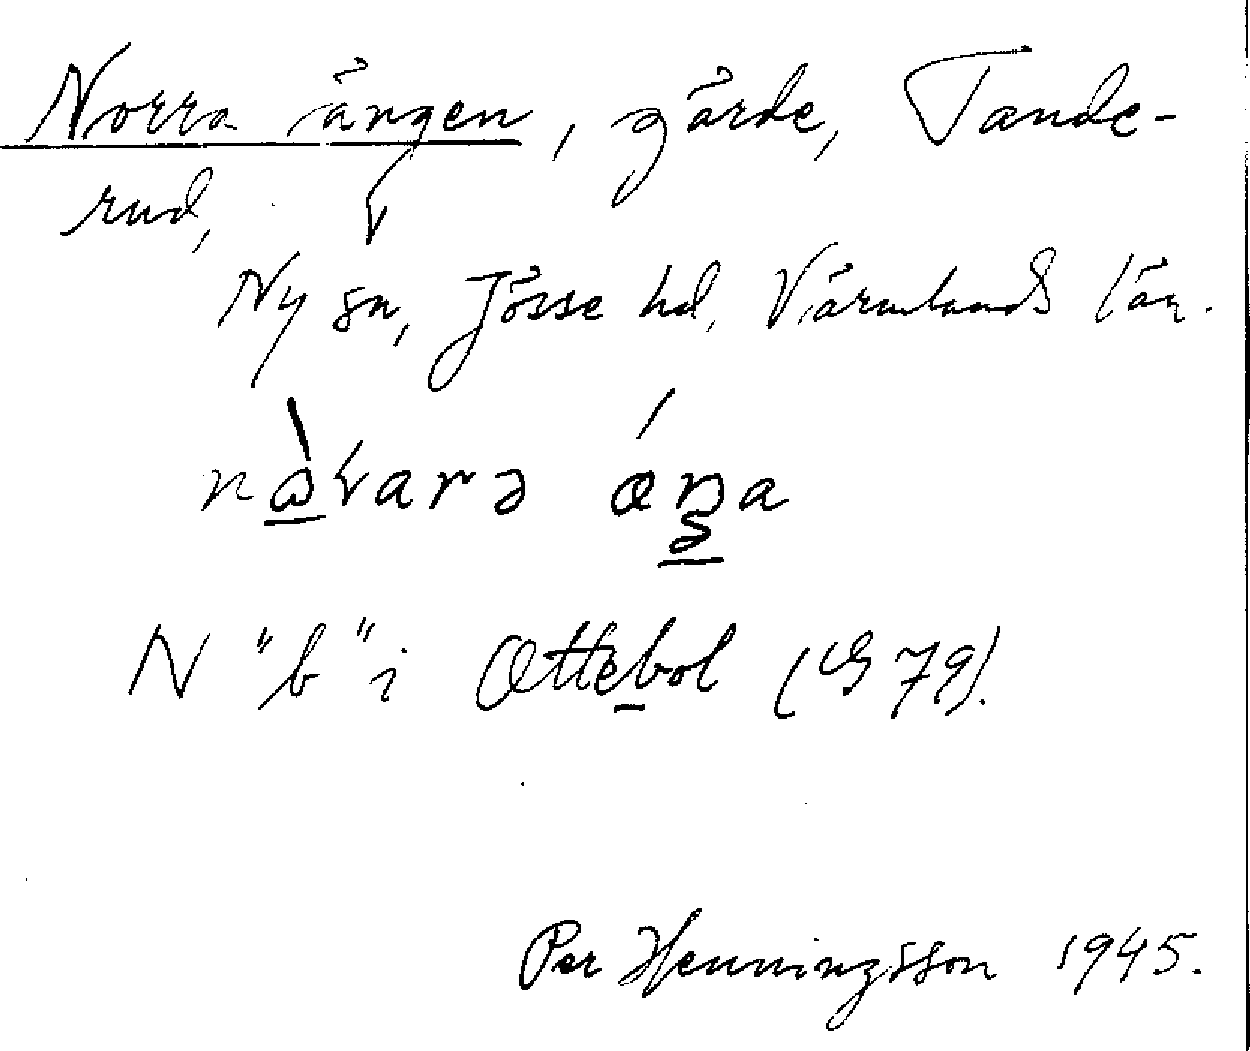 Norra ängen, gärde, Tande-
rud,
Ny sn, Jösse hd, Värmlands län.
N "b" i Ottebol (G 79).
Per Henningsson 1945.